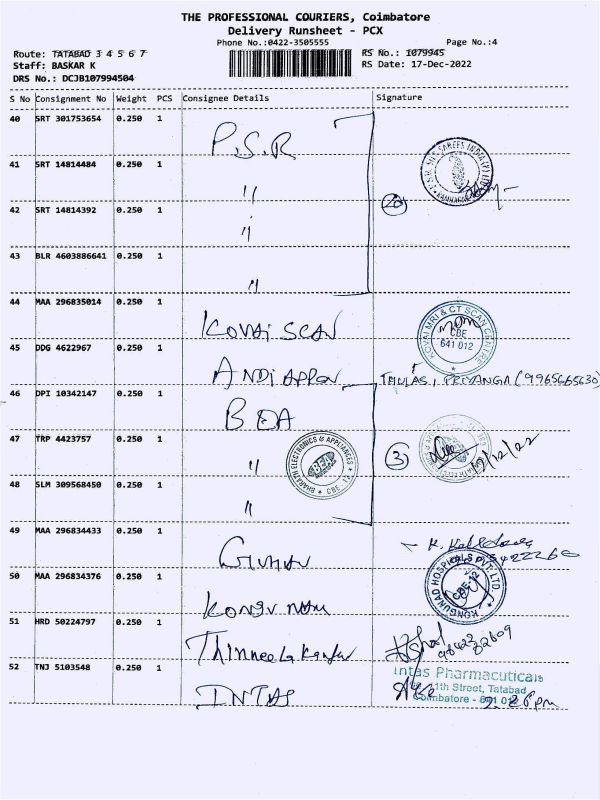 THE PROFESSIONAL COURIERS, Coimbatore
Delivery Runsheet - PCX
Phone No.:0422-3505555 Page No.:4
Route: TATABAD 3 4 5 6 7 RS No.: 1079945
Staff: BASKAR K RS Date: 17-Dec-2022
DRS No.: DCJB107994504
S No Consignment No Weight PCS Consignee Details Signature
40 SRT 301753654 0.250 1 P.S.R
41 SRT 14814484 0.250 1 "
42 SRT 14814392 0.250 1 "
43 BLR 4603886641 0.250 1 "
44 MAA 296835014 0.250 1 KOVAI SCAN KOVAI MRI & CT SCAN CENTRE CBE 641 012
45 DDG 4622967 0.250 1 ANDIAPPAN THULASI PRIYANGA (9965665630)
46 DPI 10342147 0.250 1 BEA
47 TRP 4423757 0.250 1 " BHARATH ELECTRONICS & APPLIANCES BEA CBE - 12 3 17/12/22
48 SLM 309568450 0.250 1 "
49 MAA 296834433 0.250 1
50 MAA 296834376 0.250 1 KONGUNAD HOSPITALS PVT. LTD. CBE-12
51 HRD 50224797 0.250 1
52 TNJ 5103548 0.250 1 INTAS Intas Pharmaceuticals
11th Street, Tatabad
Coimbatore - 641 012